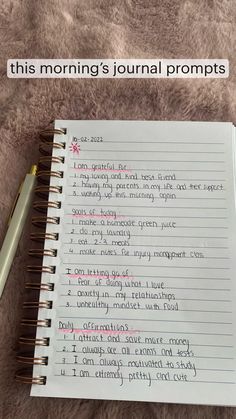 this morning's journal prompts
16-02-2022
I am grateful for:
1. my loving and kind best friend
2. having my parents in my life and their support
3. waking up this morning again
goals of today
1. make a homemade green juice
2. do my laundry
3. eat 2-3 meals
4. make notes for injury management class
I am letting go of
1. fear of doing what I love
2. anxiety in my relationships
3. unhealthy mindset with food
Daily affirmations
1. I attract and save more money
2. I always ace all exams and tests
3. I am always motivated to study
4. I am extremely pretty and cute